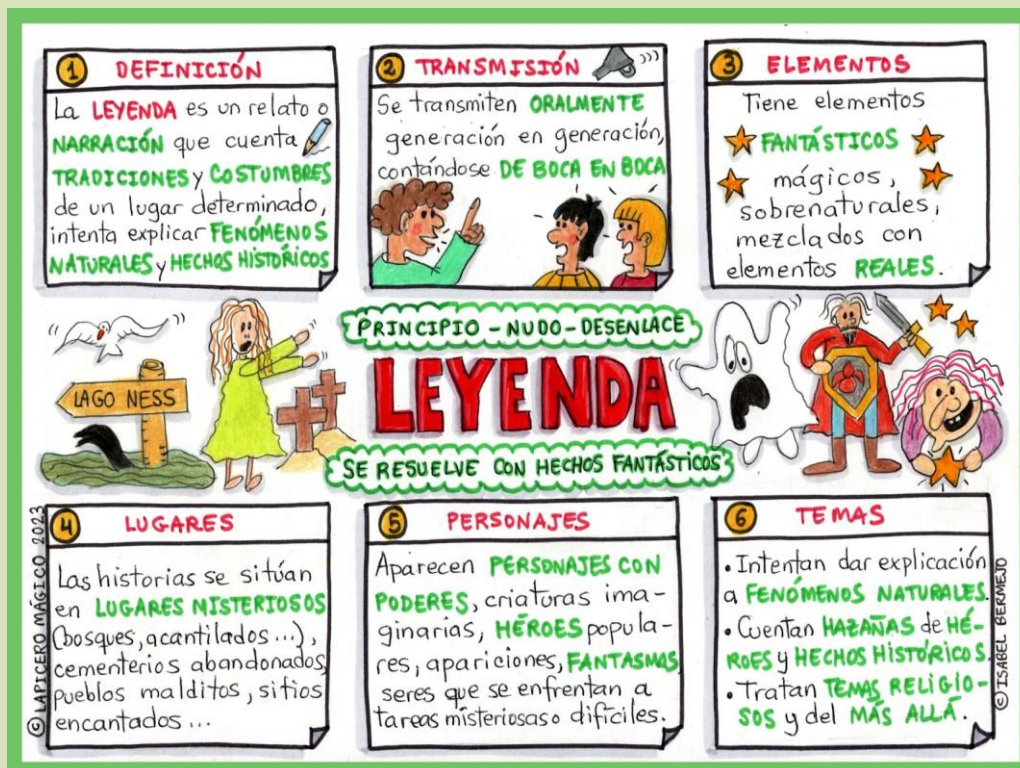 1 DEFINICIÓN
La LEYENDA es un relato o
NARRACIÓN que cuenta
TRADICIONES y COSTUMBRES
de un lugar determinado,
intenta explicar FENÓMENOS
NATURALES y HECHOS HISTÓRICOS
2 TRANSMISIÓN
Se transmiten ORALMENTE
generación en generación,
contándose DE BOCA EN BOCA
3 ELEMENTOS
Tiene elementos
FANTÁSTICOS
mágicos,
sobrenaturales,
mezclados con
elementos REALES.
LAGO NESS
PRINCIPIO - NUDO - DESENLACE
LEYENDA
SE RESUELVE CON HECHOS FANTÁSTICOS
4 LUGARES
Las historias se sitúan
en LUGARES MISTERIOSOS
(bosques, acantilados ...),
cementerios abandonados,
pueblos malditos, sitios
encantados ...
5 PERSONAJES
Aparecen PERSONAJES CON
PODERES, criaturas ima-
ginarias, HÉROES popula-
res, apariciones, FANTASMAS
seres que se enfrentan a
tareas misteriosas o difíciles.
6 TEMAS
• Intentan dar explicación
a FENÓMENOS NATURALES.
• Cuentan HAZAÑAS de HÉ-
ROES y HECHOS HISTÓRICOS.
• Tratan TEMAS RELIGIO-
SOS y del MÁS ALLÁ.
© LAPICERO MÁGICO 2023
© ISABEL BERMEJO